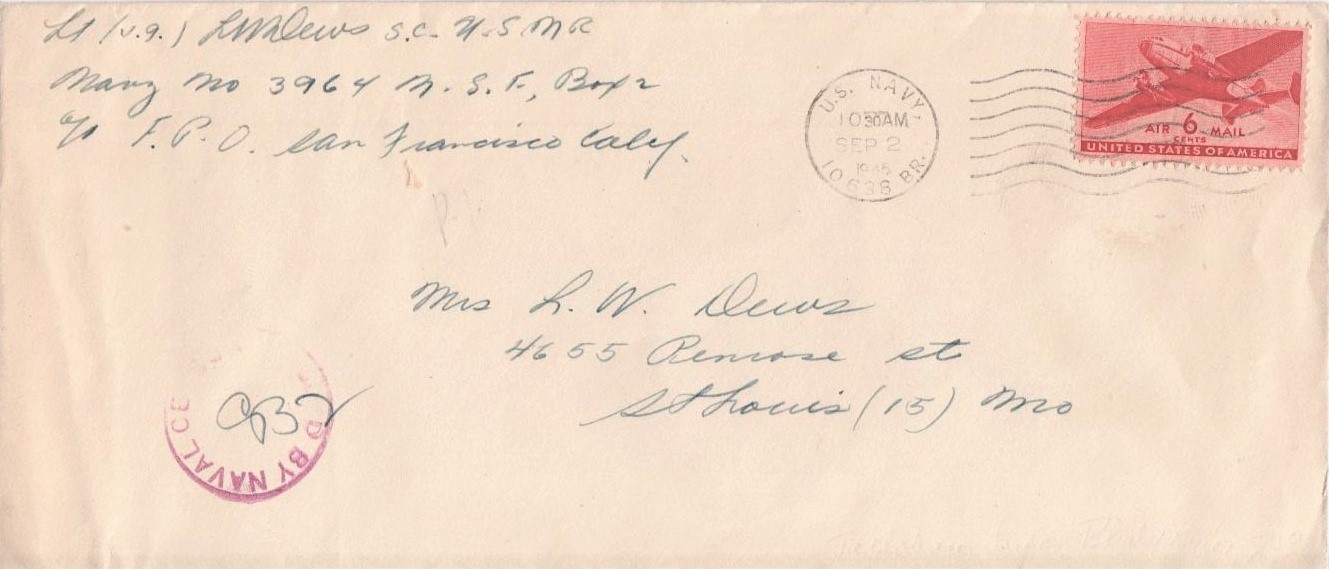 Lt (J.g.) L W Dews S.C. U.S.N.R
Navy No 3964 N.S.F., Box 2
c/o F.P.O. San Francisco Calif.
U.S. NAVY
10 30 AM
SEP 2
1945
10636 BR.
AIR 6 MAIL
CENTS
UNITED STATES OF AMERICA
Mrs L. W. Dews
4655 Penrose st
St Louis (15) Mo
D BY NAVAL CE